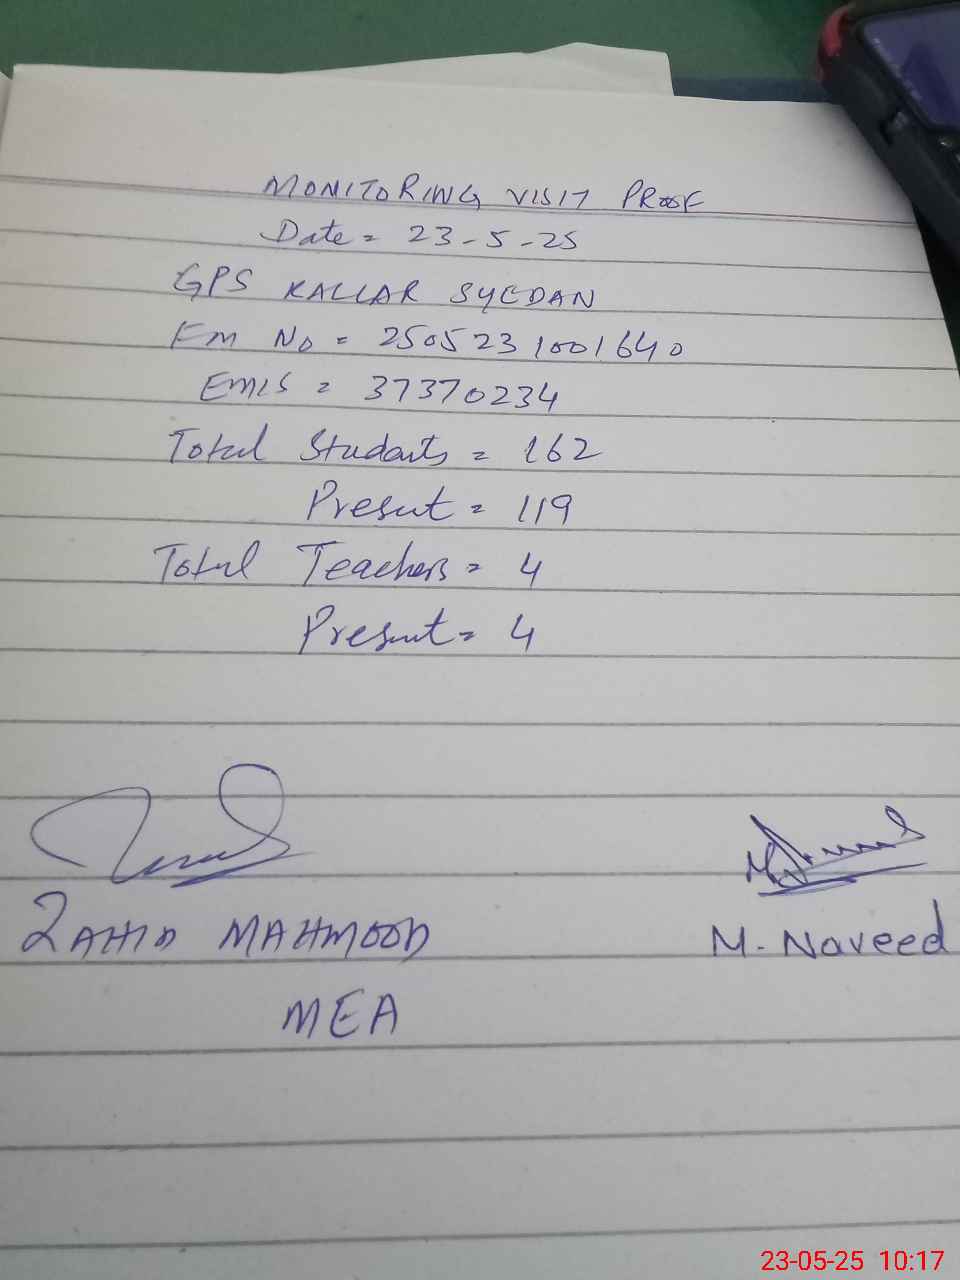 MONITORING VISIT PROOF
Date = 23-5-25
GPS KALLAR SYEDAN
Em No = 2505231001640
EMIS = 37370234
Total Students = 162
Present = 119
Total Teachers = 4
Present = 4
ZAHID MAHMOOD
M. Naveed
MEA
23-05-25 10:17